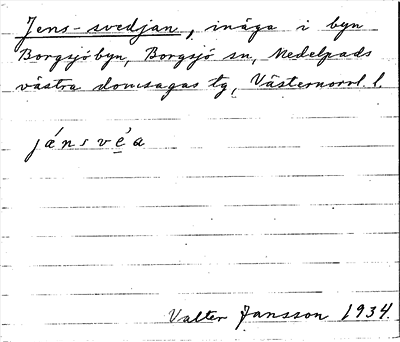 Jens-svedjan, inäga i byn
Borgsjöbyn, Borgsjö sn, Medelpads
västra domsagas tg, Västernorrl. l.
jánsvéa
Valter Jansson 1934.